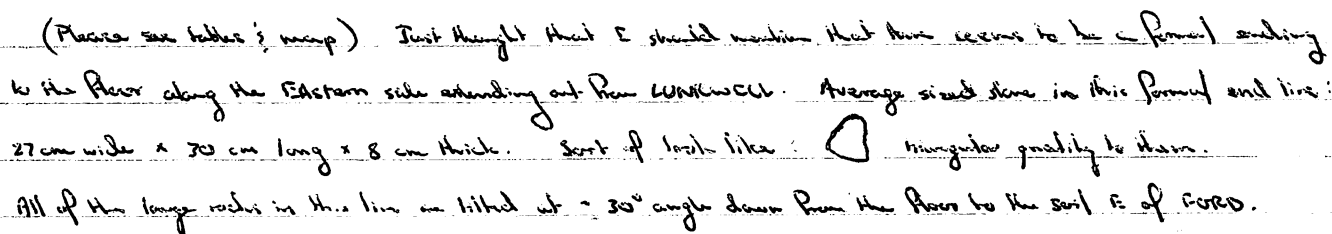 (Please see tables & map) Just thought that I should mention that there seems to be a formal ending
to the floor along the EAstern side extending out from LUNKWELL. Average sized stone in this formal end line:
27 cm wide x 30 cm long x 8 cm thick. Sort of look like: triangular quality to them.
All of the large rocks in this line are tilted at ~ 30° angle down from the floor to the soil E of FORD.